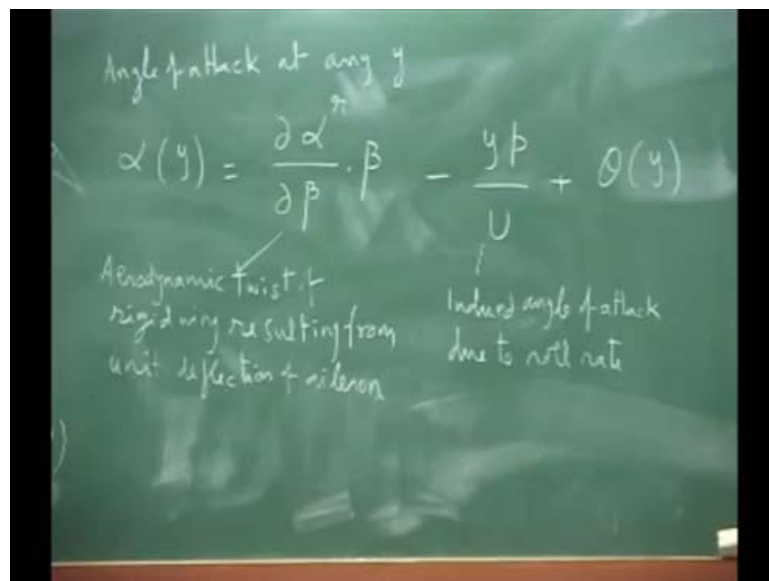 Angle of attack at any y
α(y) = ∂α^r/∂β · β - yp/U + θ(y)
Aerodynamic twist of
rigid wing resulting from
unit deflection of aileron
Induced angle of attack
due to roll rate
)